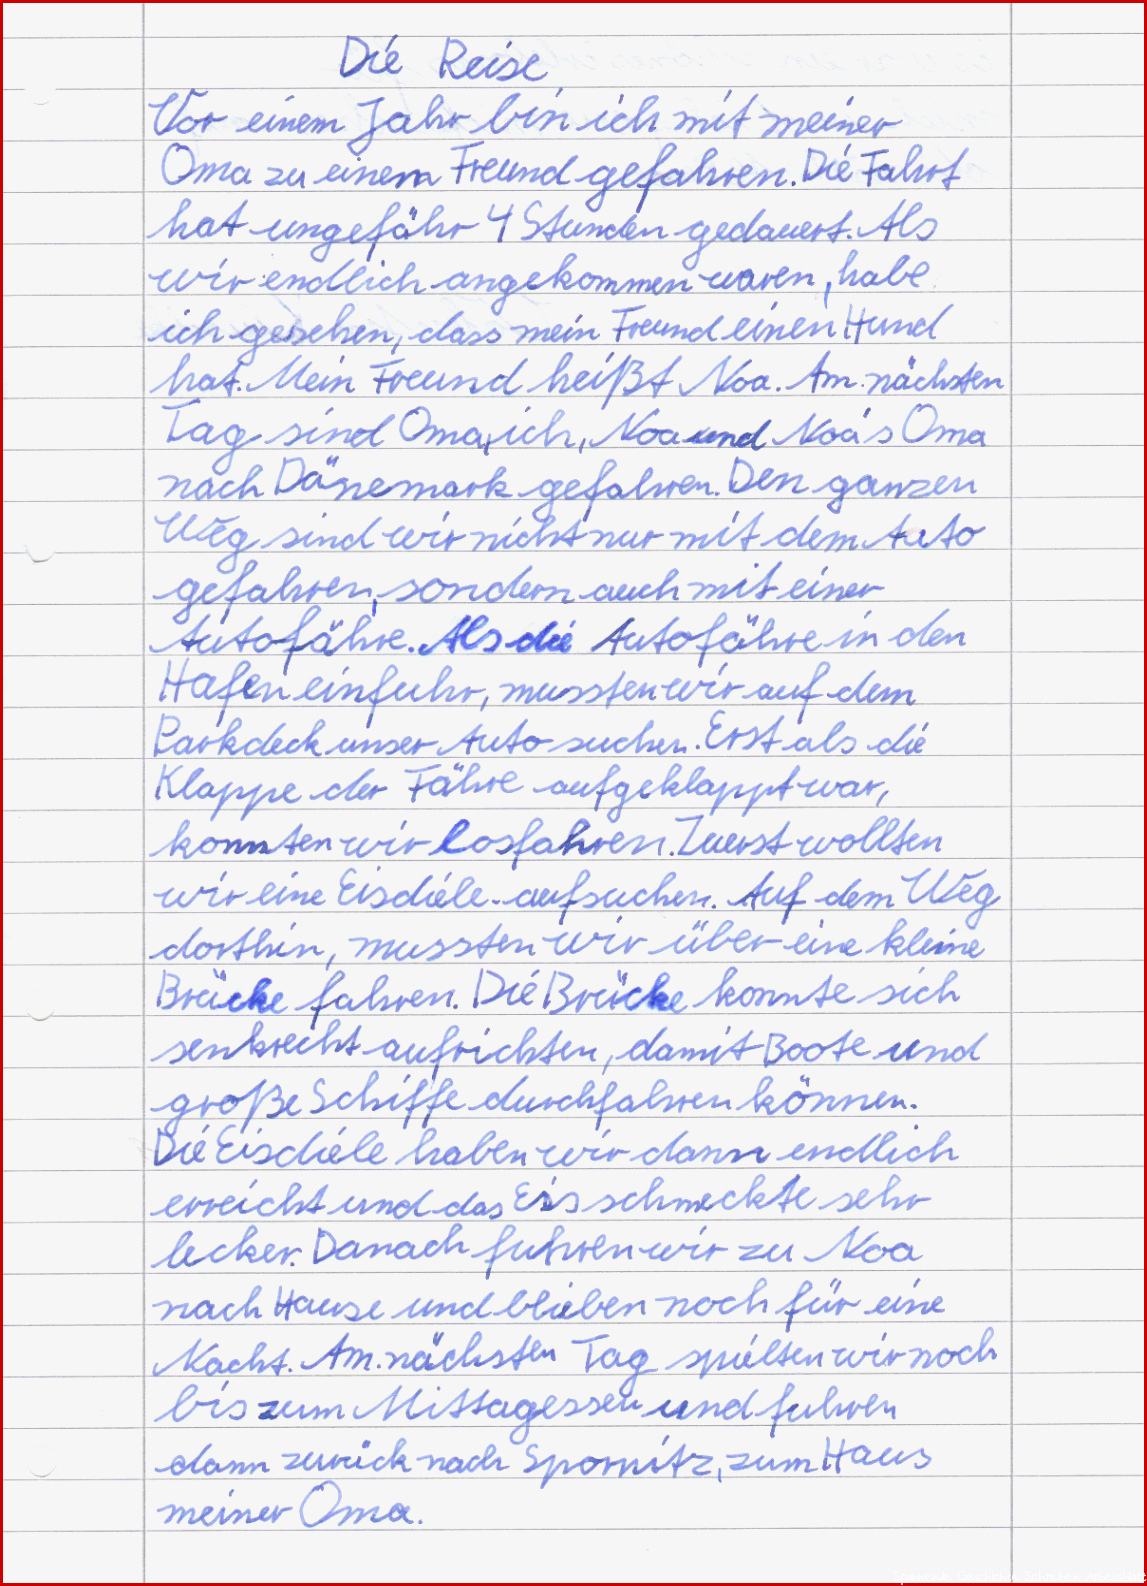 Die Reise
Vor einem Jahr bin ich mit meiner
Oma zu einem Freund gefahren. Die Fahrt
hat ungefähr 4 Stunden gedauert. Als
wir endlich angekommen waren, habe
ich gesehen, dass mein Freund einen Hund
hat. Mein Freund heißt Noa. Am nächsten
Tag sind Oma, ich, Noa und Noa's Oma
nach Dänemark gefahren. Den ganzen
Weg sind wir nicht nur mit dem Auto
gefahren, sondern auch mit einer
Autofähre. Als die Autofähre in den
Hafen einfuhr, mussten wir auf dem
Parkdeck unser Auto suchen. Erst als die
Klappe der Fähre aufgeklappt war,
konnten wir losfahren. Zuerst wollten
wir eine Eisdiele aufsuchen. Auf dem Weg
dorthin, mussten wir über eine kleine
Brücke fahren. Die Brücke konnte sich
senkrecht aufrichten, damit Boote und
große Schiffe durchfahren können.
Die Eisdiele haben wir dann endlich
erreicht und das Eis schmeckte sehr
lecker. Danach fuhren wir zu Noa
nach Hause und blieben noch für eine
Nacht. Am nächsten Tag spielten wir noch
bis zum Mittagessen und fuhren
dann zurück nach Spornitz, zum Haus
meiner Oma.